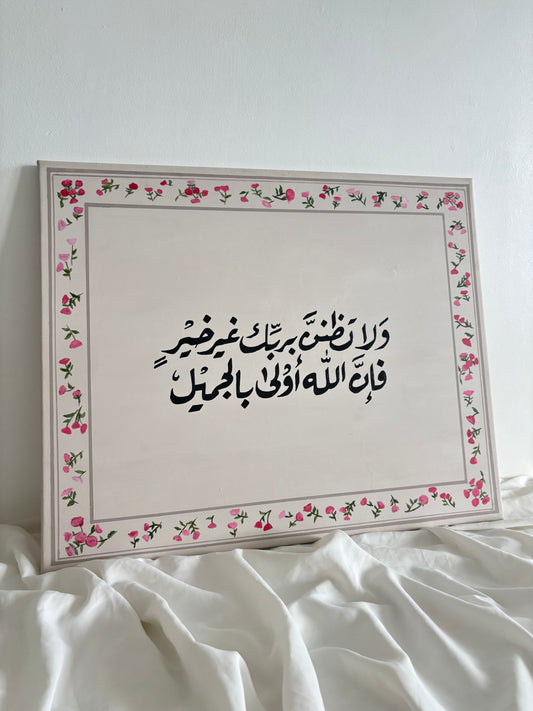 وَلا تَظُنَّ بربِّك غير خيْرٍ
فإنَّ اللّه أوْلىٰ بالجميْل